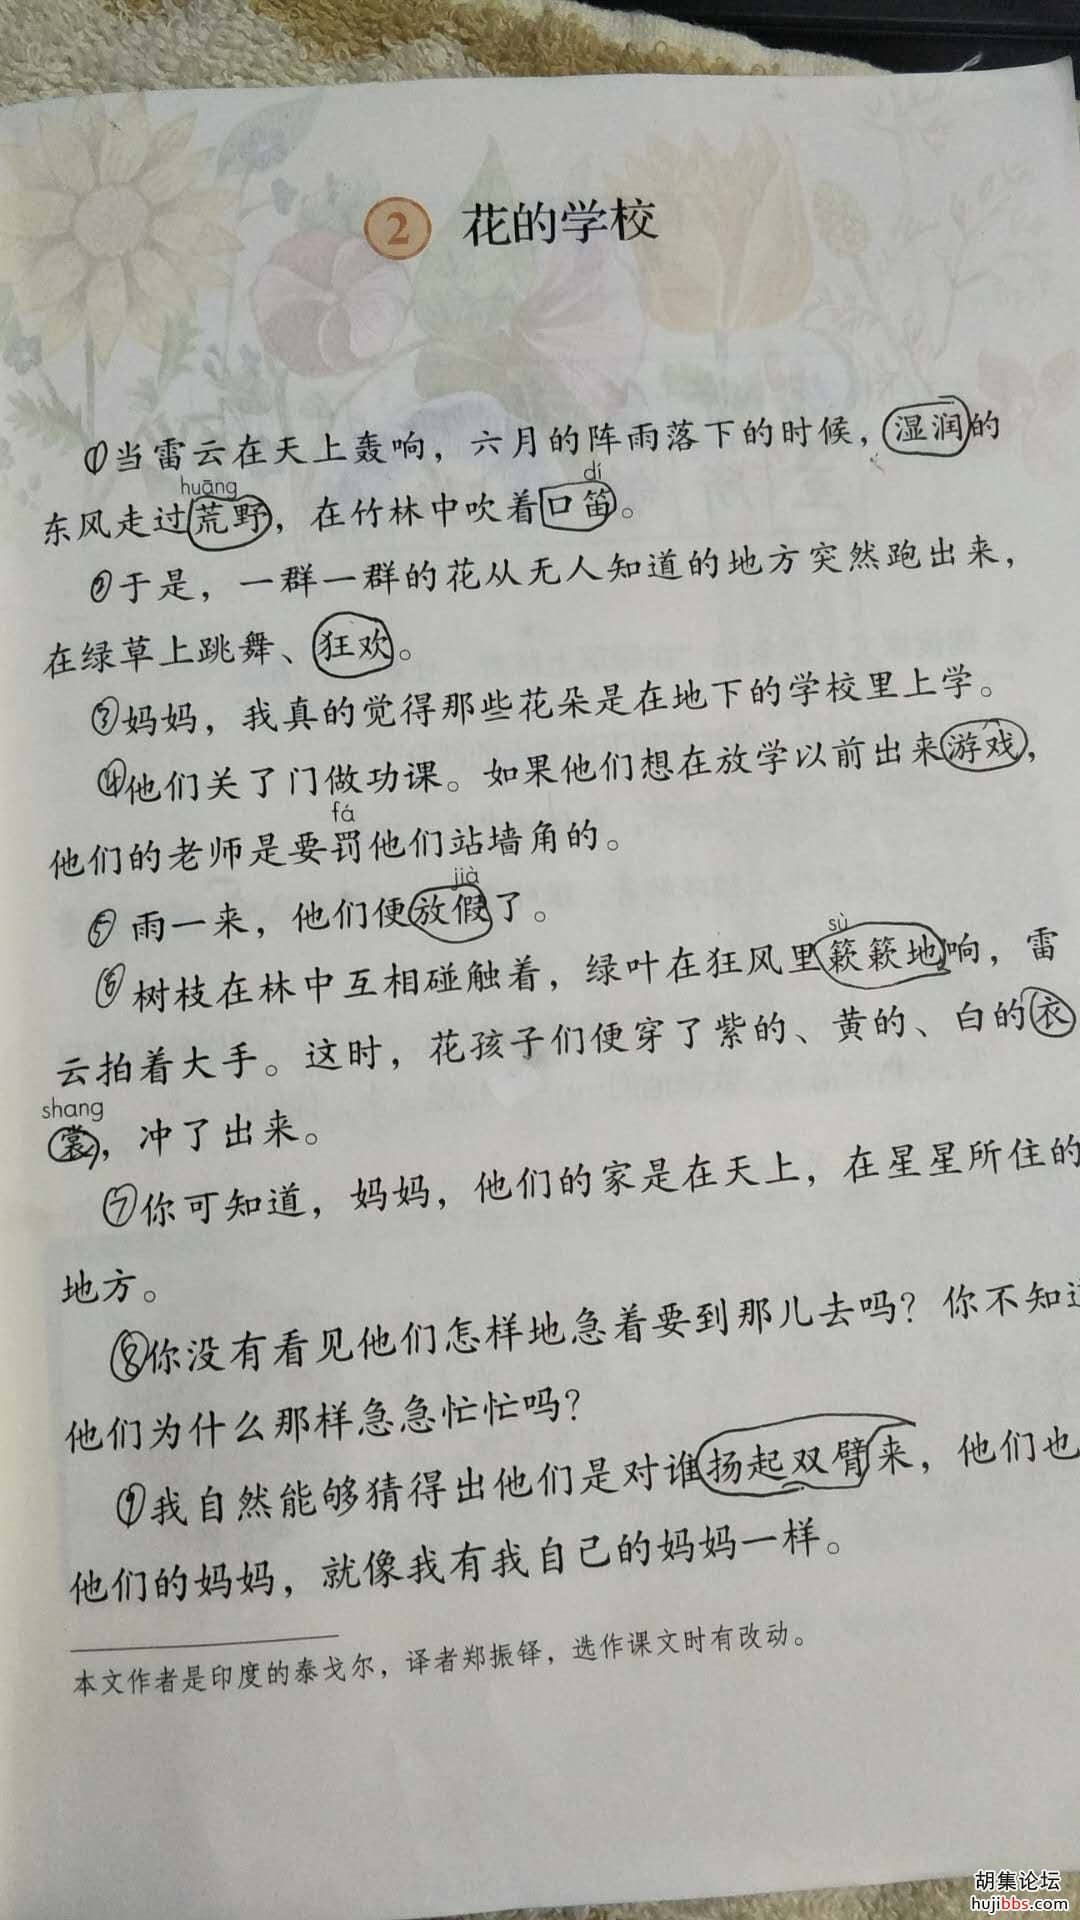 2 花的学校
①当雷云在天上轰响，六月的阵雨落下的时候，湿润的
huāng dí
东风走过荒野，在竹林中吹着口笛。
②于是，一群一群的花从无人知道的地方突然跑出来，
在绿草上跳舞、狂欢。
③妈妈，我真的觉得那些花朵是在地下的学校里上学。
④他们关了门做功课。如果他们想在放学以前出来游戏，
fá
他们的老师是要罚他们站墙角的。
jià
⑤雨一来，他们便放假了。
sù
⑥树枝在林中互相碰触着，绿叶在狂风里簌簌地响，雷
云拍着大手。这时，花孩子们便穿了紫的、黄的、白的衣
shang
裳，冲了出来。
⑦你可知道，妈妈，他们的家是在天上，在星星所住的
地方。
⑧你没有看见他们怎样地急着要到那儿去吗？你不知道
他们为什么那样急急忙忙吗？
⑨我自然能够猜得出他们是对谁扬起双臂来，他们也
他们的妈妈，就像我有我自己的妈妈一样。
本文作者是印度的泰戈尔，译者郑振铎，选作课文时有改动。
胡集论坛
hujibbs.com